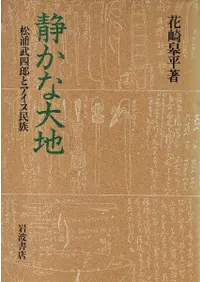 花崎皋平著
静かな大地
松浦武四郎とアイヌ民族
岩波書店